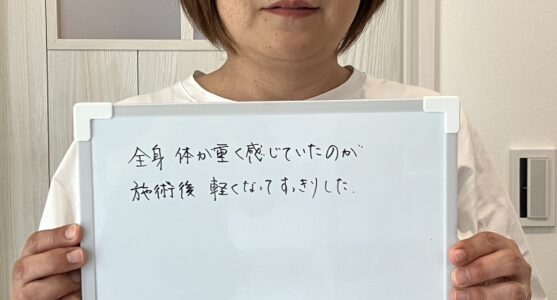 全身 体が重く感じていたのが
施術後 軽くなってすっきりした.